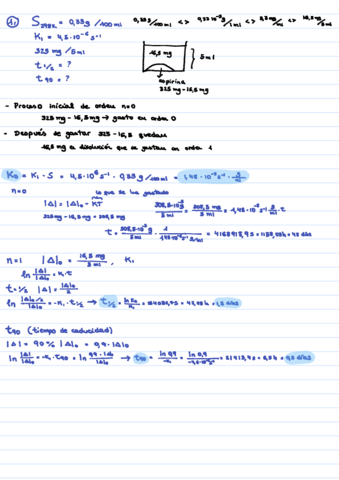 1. S298K = 0,33g /100ml 0,33g/100ml <> 0,33·10⁻²g/1ml <> 3,3mg/ml <> 16,5mg/5ml
K1 = 4,5·10⁻⁶ s⁻¹
325 mg /5ml
t1/2 = ?
t90 = ?
16,5 mg
5ml
aspirina
325 mg - 16,5mg
- Proceso inicial de orden n=0
325 mg - 16,5mg → gasto en orden 0
- Después de gastar 325 - 16,5 quedan
16,5 mg en disolución que se gastan en orden 1
K0 = K1 · S = 4,5·10⁻⁶ s⁻¹ · 0,33g/100ml = 1,48·10⁻⁸ s⁻¹ · g/ml
n=0 lo que se ha gastado
|A| = |A|0 - KT
325mg - 16,5mg = 308,5mg
308,5·10⁻³g/5ml = 308,5 mg/5 ml = 1,48·10⁻⁸ g/ml s⁻¹ · t
t = 308,5·10⁻³g/5ml · 1/1,48·10⁻⁸ s⁻¹ g/ml = 4168918,9s = 1158,03h = 48 días
n=1 |A|0 = 16,5 mg/5 ml , K1
ln |A|/|A|0 = K1·t
t = t1/2 |A| = |A|0/2
ln |A|0/2/|A|0 = -K1 · t1/2 → t1/2 = ln 2/K1
t90 (tiempo de caducidad)
|A| = 90% |A|0 = 0,9 · |A|0
ln |A|/|A|0 = -K1 · t90 = ln 0,9·|A|0/|A|0 → t90 = ln 0,9/-K1